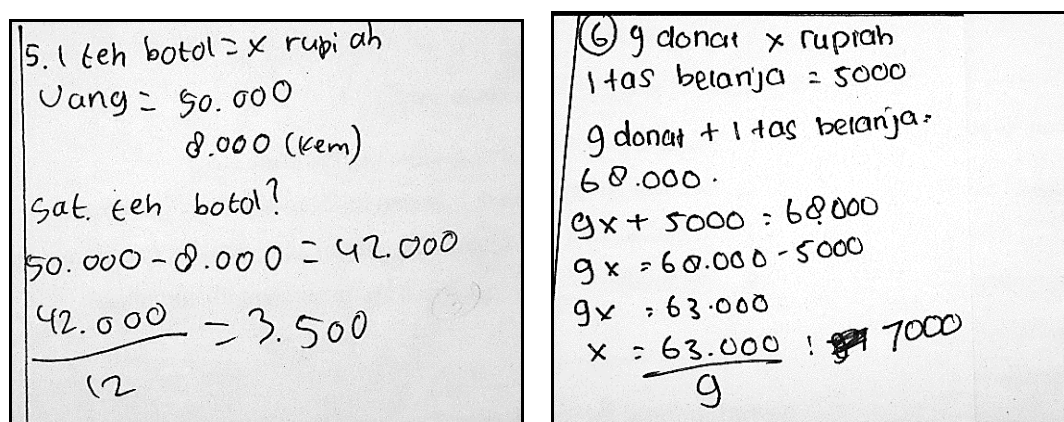 5. 1 teh botol = x rupiah
Uang = 50.000
8.000 (kem)
Sat. teh botol?
50.000 - 8.000 = 42.000
42.000 = 3.500
12
6 9 donat x rupiah
1 tas belanja = 5000
9 donat + 1 tas belanja =
68.000.
9x + 5000 = 68000
9x = 68.000 - 5000
9x = 63.000
x = 63.000 : 7000
9